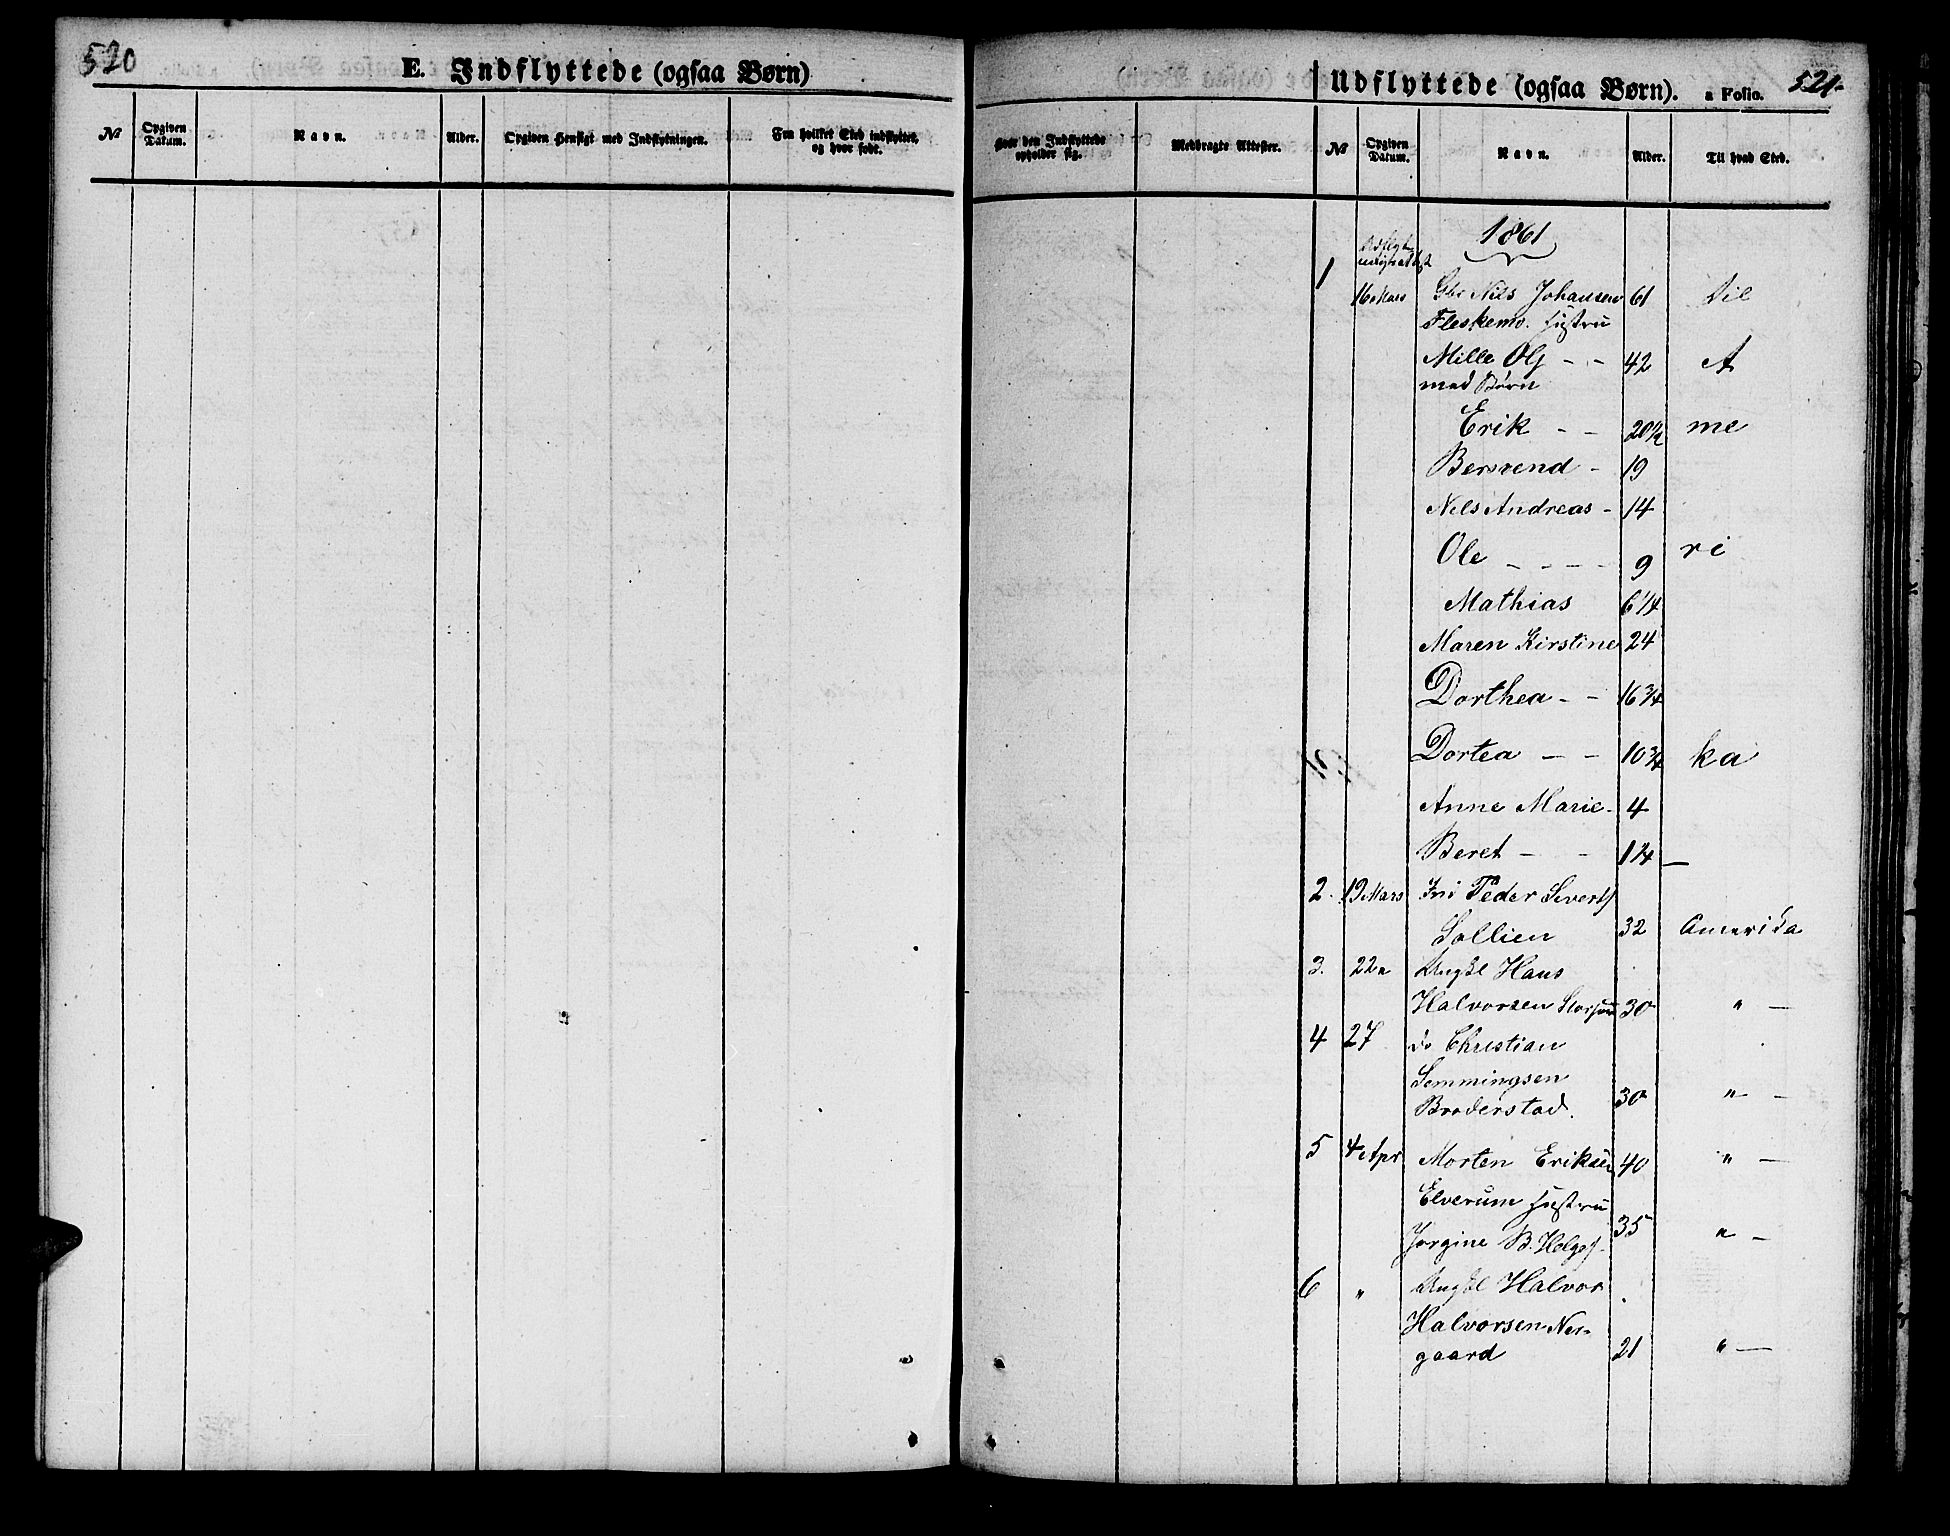 520
E. Indflyttede (ogsaa Børn)
№
Opgiven Datum.
Navn.
Alder.
Opgiven Hensigt med Indflytningen.
Fra hvilket Sted indflyttet, og hvor født.
Udflyttede (ogsaa Børn). a Folio. 521.
Hvor den Indflyttede opholder sig.
Medbragte Attester.
№
Opgiven Datum.
Navn.
Alder.
Til hvad Sted.
1861
1
16 Mars Gbr Nils Johansen 61 til
Fleskemo. Hustru
Mille Ols - - 42 A
med Børn
Erik - - 20½ me
Berrend - 19
Nils Andreas - 14
Ole - - - - 9 ri
Mathias 6¼
Maren Kirstine 24
Dorthea - - 16¾
Dortea - - 10¾ ka
Anne Marie - 4
Beret - - 1¼
2. 19 Mars Ind Peder Siverts
Sollien 32 Amerika
3. 22 " Ungkl Hans
Halvorsen 30 " -
4 27 do Christian
Semmingsen
Broderstad. 30 " -
5 4 Apr Morten Eriksen 40 " -
Elverum Hustru
Jørgine B. Helges. 35 " -
6 " Ungkl Halvor
Halvorsen Nes-
gaard 21 " -